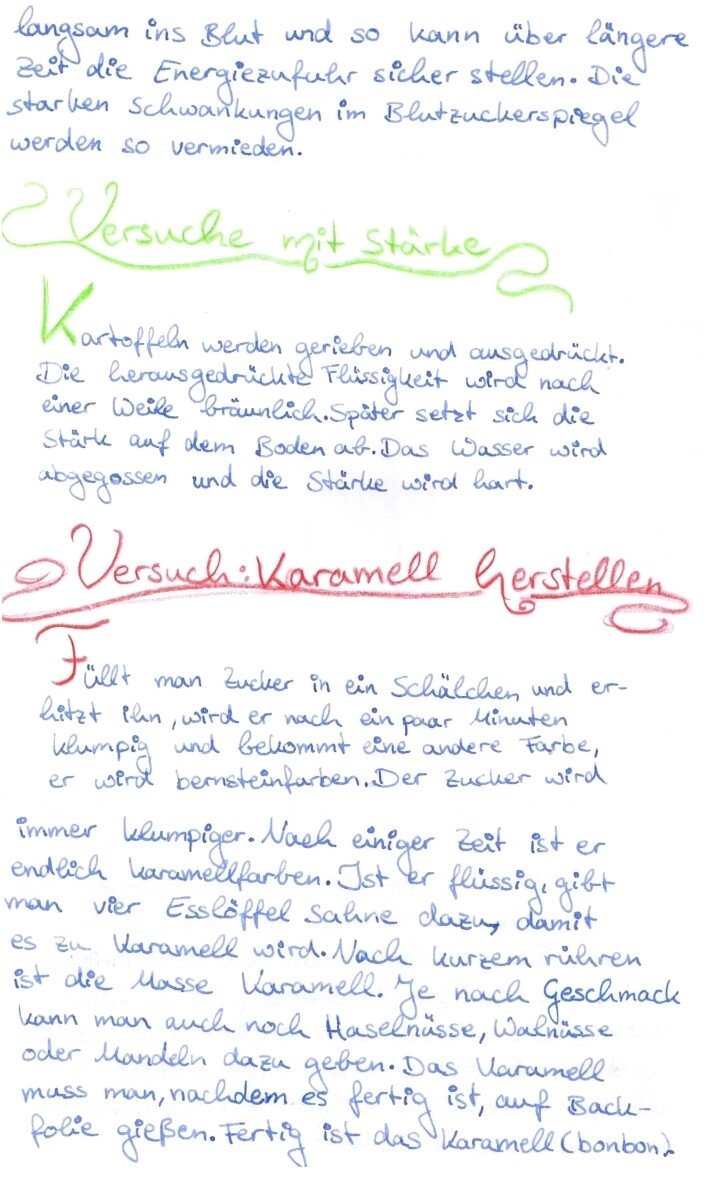 langsam ins Blut und so kann über längere
Zeit die Energiezufuhr sicher stellen. Die
starken Schwankungen im Blutzuckerspiegel
werden so vermieden.
Versuche mit Stärke
Kartoffeln werden gerieben und ausgedrückt.
Die herausgedrückte Flüssigkeit wird nach
einer Weile bräunlich. Später setzt sich die
Stärk auf dem Boden ab. Das Wasser wird
abgegossen und die Stärke wird hart.
Versuch: Karamell herstellen
Füllt man Zucker in ein Schälchen und er-
hitzt ihn, wird er nach ein paar Minuten
klumpig und bekommt eine andere Farbe,
er wird bernsteinfarben. Der Zucker wird
immer klumpiger. Nach einiger Zeit ist er
endlich karamellfarben. Ist er flüssig, gibt
man vier Esslöffel Sahne dazu, damit
es zu Karamell wird. Nach kurzem rühren
ist die Masse Karamell. Je nach Geschmack
kann man auch noch Haselnüsse, Walnüsse
oder Mandeln dazu geben. Das Karamell
muss man, nachdem es fertig ist, auf Back-
folie gießen. Fertig ist das Karamell(bonbon).